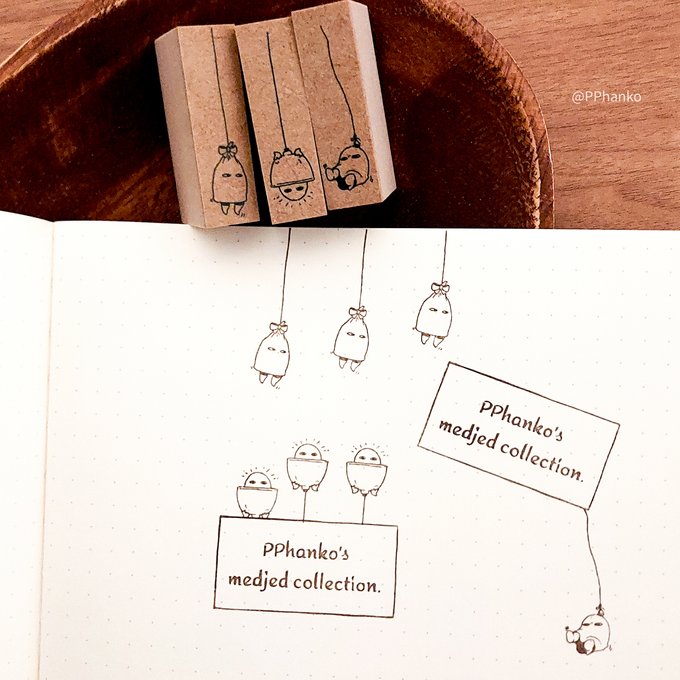 @PPhanko
PPhanko's
medjed collection.
PPhanko's
medjed collection.